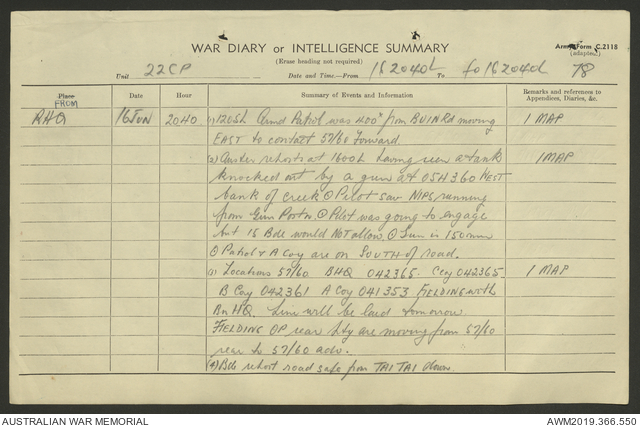 WAR DIARY or INTELLIGENCE SUMMARY
(Erase heading not required)
Army Form C.2118
(adapted)
78
Unit 22CP Date and Time.—From 162040L To fo 162040L
Place Date Hour Summary of Events and Information Remarks and references to Appendices, Diaries, &c.
FROM
RHQ 16 JUN 2040 (1) 1205h Armd Patrol was 400ˣ from BUIN Rd moving 1 MAP
EAST to contact 57/60 Forward.
(2) Auster reports at 1600h having seen a tank 1 MAP
knocked out by a gun at 054360 WEST
bank of creek Pilot saw NIPS running
from Gun Postn. Pilot was going to engage
but 15 Bde would NOT allow. Gun is 150mm
Patrol & A Coy are on SOUTH of road.
(3) Locations 57/60 BHQ 042365 C Coy 042365 1 MAP
B Coy 042361 A Coy 041353 FIELDING with
Bn HQ. Line will be laid tomorrow
FIELDING OP rear bty are moving from 57/60
rear to 57/60 adv.
(4) Bde report road safe from TAI TAI down.
AUSTRALIAN WAR MEMORIAL
AWM2019.366.550